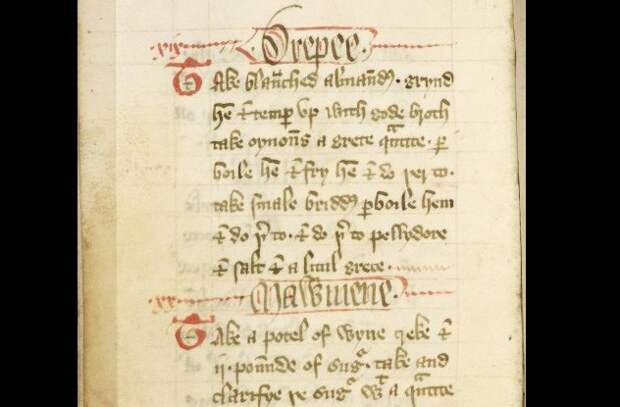 .xix. Drepee.
Take blanched almandꝭ. grynd
hē ⁊ temp vp with gode broth
take oynons a grete qͣntite. ꝑ
boile hē ⁊ fry hē ⁊ do þer to.
take smale briddꝭ ꝑboile hem
⁊ do þ to. ⁊ do þ to pellydore
⁊ salt ⁊ a litul grece.
.xx. Mawmene.
Take a potel of wyne greke ⁊
ij. pounde of sug. take and
clarifye þe sug wͭ a qͣntite